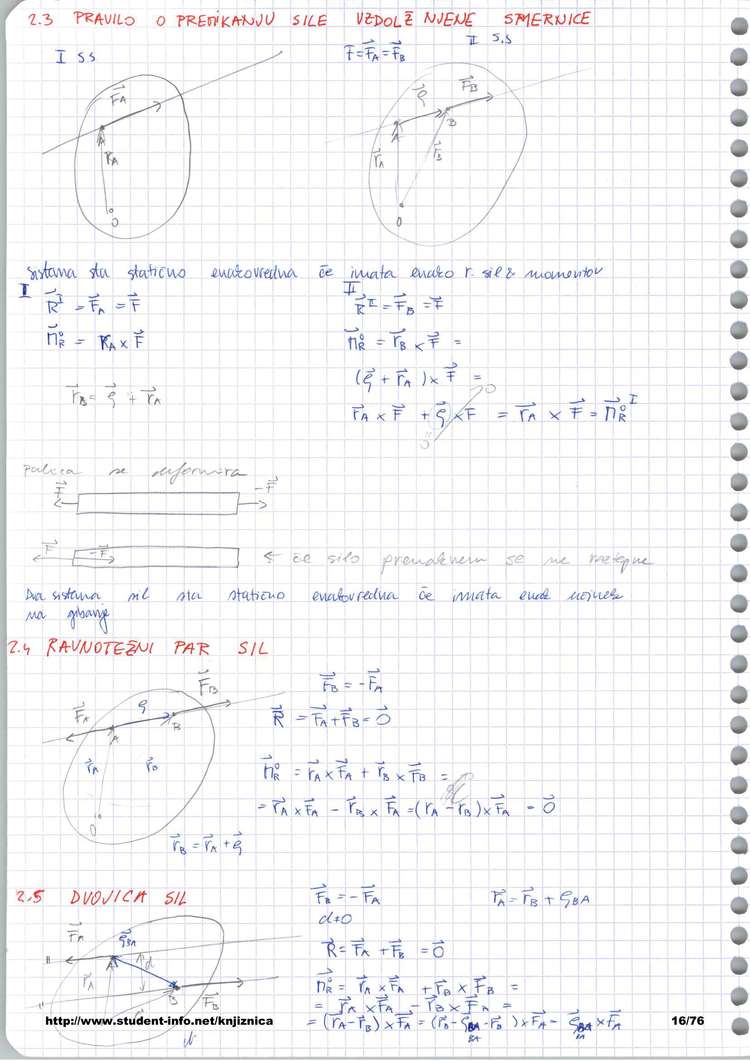 2.3 PRAVILO O PREMIKANJU SILE VZDOLŽ NJENE SMERNICE
I S S
F⃗ = F⃗A = F⃗B
II S.S
F⃗A
A
r⃗A
O
ρ⃗
F⃗B
A
B
r⃗A
r⃗B
O
sistema sta statično enakovredna če imata enako r. sil & momentov
I
R⃗ᴵ = F⃗A = F⃗
M⃗R⁰ = r⃗A × F⃗
r⃗B = ρ⃗ + r⃗A
II
R⃗ᴵᴵ = F⃗B = F⃗
M⃗R⁰ = r⃗B × F⃗ =
(ρ⃗ + r⃗A) × F⃗ =
r⃗A × F⃗ + ρ⃗ × F⃗ = r⃗A × F⃗ = M⃗R⁰ ᴵ
0
palica se deformira
F⃗
-F⃗
F⃗
-F⃗
← če silo premaknem se ne raztegne
Dva sistema sil sta statično enakovredna če imata enak
na gibanje
2.4 RAVNOTEŽNI PAR SIL
F⃗A
ρ
F⃗B
A
B
r⃗A
r⃗B
O
r⃗B = r⃗A + ρ⃗
F⃗B = -F⃗A
R⃗ = F⃗A + F⃗B = 0⃗
M⃗R⁰ = r⃗A × F⃗A + r⃗B × F⃗B =
= r⃗A × F⃗A - r⃗B × F⃗A = (r⃗A - r⃗B) × F⃗A = 0⃗
2.5 DVOJICA SIL
F⃗A
ρ⃗BA
A
d
r⃗A
B
F⃗B
F⃗B = -F⃗A
d≠0
r⃗A = r⃗B + ρBA
R⃗ = F⃗A + F⃗B = 0⃗
M⃗R⁰ = r⃗A × F⃗A + r⃗B × F⃗B =
= r⃗A × F⃗A - r⃗B × F⃗A =
= (r⃗A - r⃗B) × F⃗A = (r⃗B - ρ⃗BA - r⃗B) × F⃗A - ρ⃗BA × F⃗A
http://www.student-info.net/knjiznica
16/76